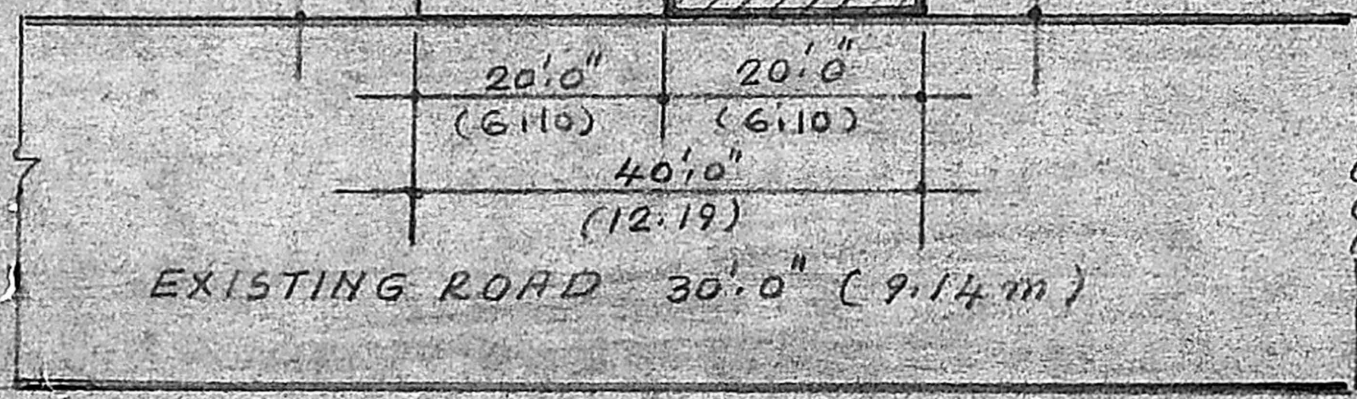 20'.0" 20'.0"
(6.10) (6.10)
40'.0"
(12.19)
EXISTING ROAD 30'.0" (9.14m)